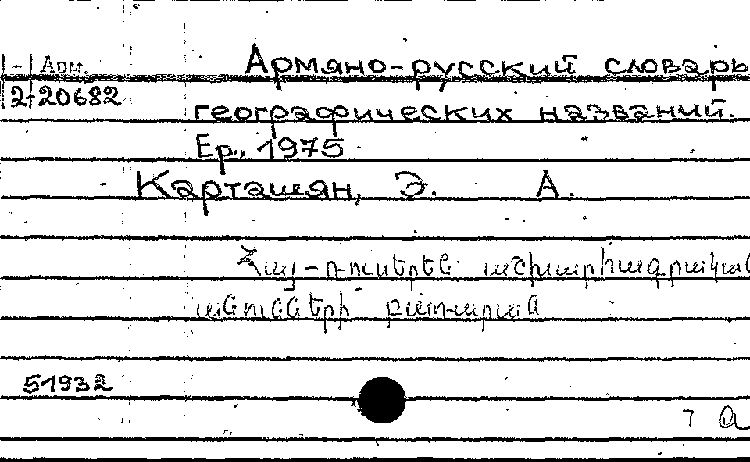 Арм. Армяно-русский словарь
2-20682
географических названий.
Ер., 1975
Карташян, Э. А.
Հայ-ռուսերեն աշխարհագրական
անունների բառարան
51932
7 а